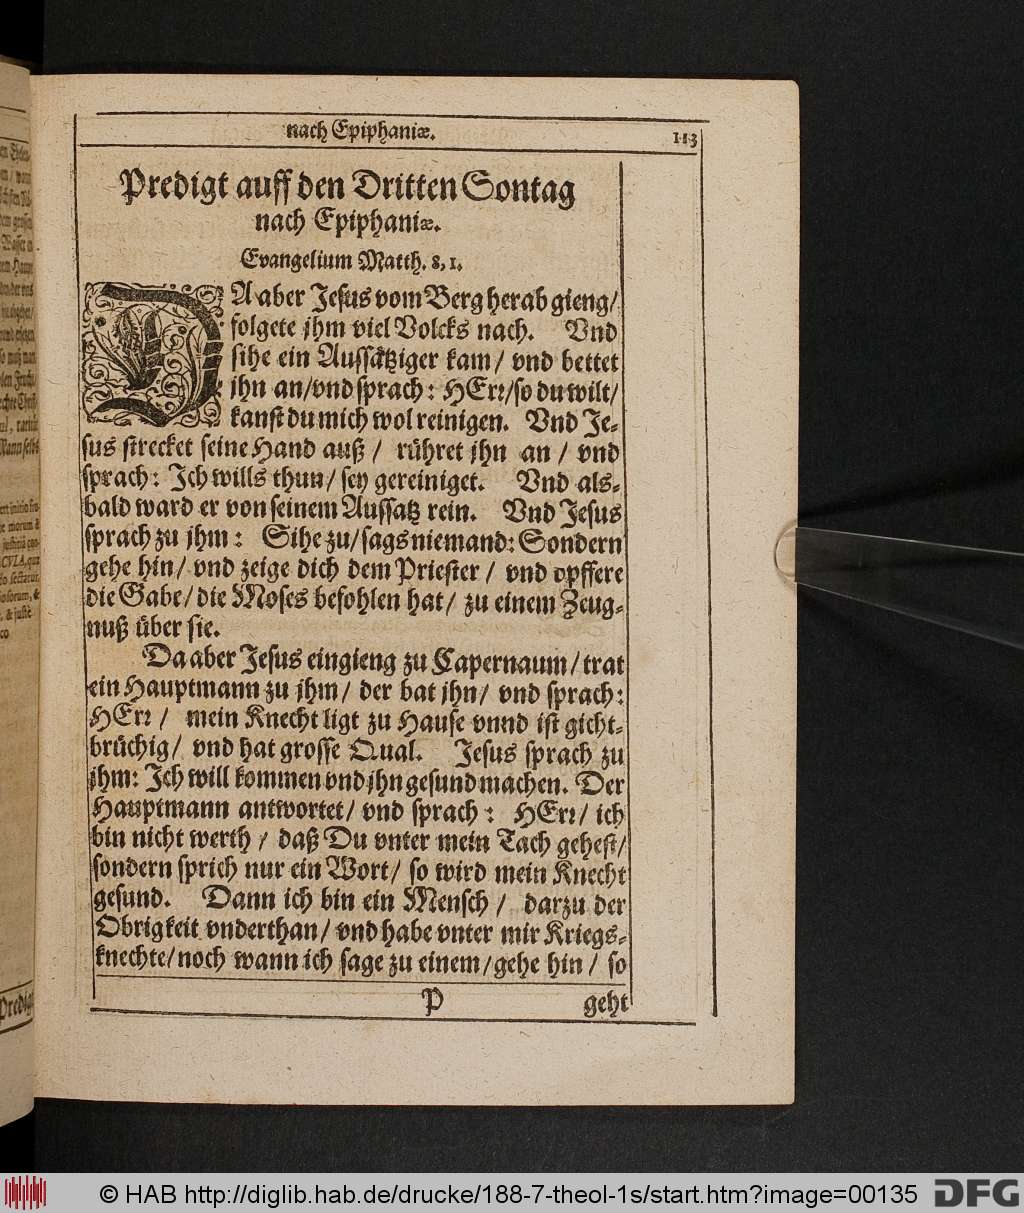 nach Epiphaniæ. 113
Predigt auff den Dritten Sontag
nach Epiphaniæ.
Evangelium Matth. 8, 1.
DA aber Jesus vom Berg herab gieng/
folgete jhm viel Volcks nach. Vnd
sihe ein Aussätziger kam/ vnd bettet
jhn an/vnd sprach: HErr/so du wilt/
kanst du mich wol reinigen. Vnd Je-
sus strecket seine Hand auß/ rühret jhn an/ vnd
sprach: Jch wills thun/ sey gereiniget. Vnd als-
bald ward er von seinem Aussatz rein. Vnd Jesus
sprach zu jhm: Sihe zu/ sags niemand: Sondern
gehe hin/ vnd zeige dich dem Priester/ vnd opffere
die Gabe/ die Moses befohlen hat/ zu einem Zeug-
nuß über sie.
Da aber Jesus eingieng zu Capernaum/ trat
ein Hauptmann zu jhm/ der bat jhn/ vnd sprach:
HErr/ mein Knecht ligt zu Hause vnnd ist gicht-
brüchig/ vnd hat grosse Qual. Jesus sprach zu
jhm: Jch will kommen vnd jhn gesund machen. Der
Hauptmann antwortet/ vnd sprach: HErr/ ich
bin nicht werth/ daß Du vnter mein Tach gehest/
sondern sprich nur ein Wort/ so wird mein Knecht
gesund. Dann ich bin ein Mensch/ darzu der
Obrigkeit vnderthan/ vnd habe vnter mir Kriegs-
knechte/ noch wann ich sage zu einem/ gehe hin/ so
P geht
© HAB http://diglib.hab.de/drucke/188-7-theol-1s/start.htm?image=00135 DFG